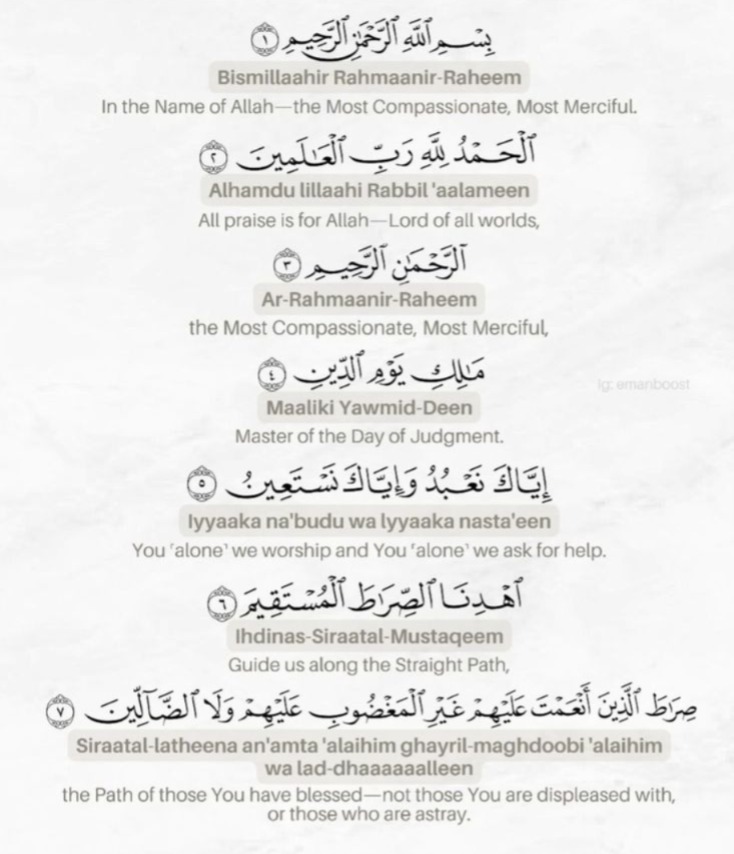 بِسْمِ ٱللَّهِ ٱلرَّحْمَـٰنِ ٱلرَّحِيمِ ١
Bismillaahir Rahmaanir-Raheem
In the Name of Allah—the Most Compassionate, Most Merciful.
ٱلْحَمْدُ لِلَّهِ رَبِّ ٱلْعَـٰلَمِينَ ٢
Alhamdu lillaahi Rabbil 'aalameen
All praise is for Allah—Lord of all worlds,
ٱلرَّحْمَـٰنِ ٱلرَّحِيمِ ٣
Ar-Rahmaanir-Raheem
the Most Compassionate, Most Merciful,
مَـٰلِكِ يَوْمِ ٱلدِّينِ ٤
Ig: emanboost
Maaliki Yawmid-Deen
Master of the Day of Judgment.
إِيَّاكَ نَعْبُدُ وَإِيَّاكَ نَسْتَعِينُ ٥
Iyyaaka na'budu wa lyyaaka nasta'een
You ˹alone˺ we worship and You ˹alone˺ we ask for help.
ٱهْدِنَا ٱلصِّرَٰطَ ٱلْمُسْتَقِيمَ ٦
Ihdinas-Siraatal-Mustaqeem
Guide us along the Straight Path,
صِرَٰطَ ٱلَّذِينَ أَنْعَمْتَ عَلَيْهِمْ غَيْرِ ٱلْمَغْضُوبِ عَلَيْهِمْ وَلَا ٱلضَّآلِّينَ ٧
Siraatal-latheena an'amta 'alaihim ghayril-maghdoobi 'alaihim
wa lad-dhaaaaaalleen
the Path of those You have blessed—not those You are displeased with,
or those who are astray.